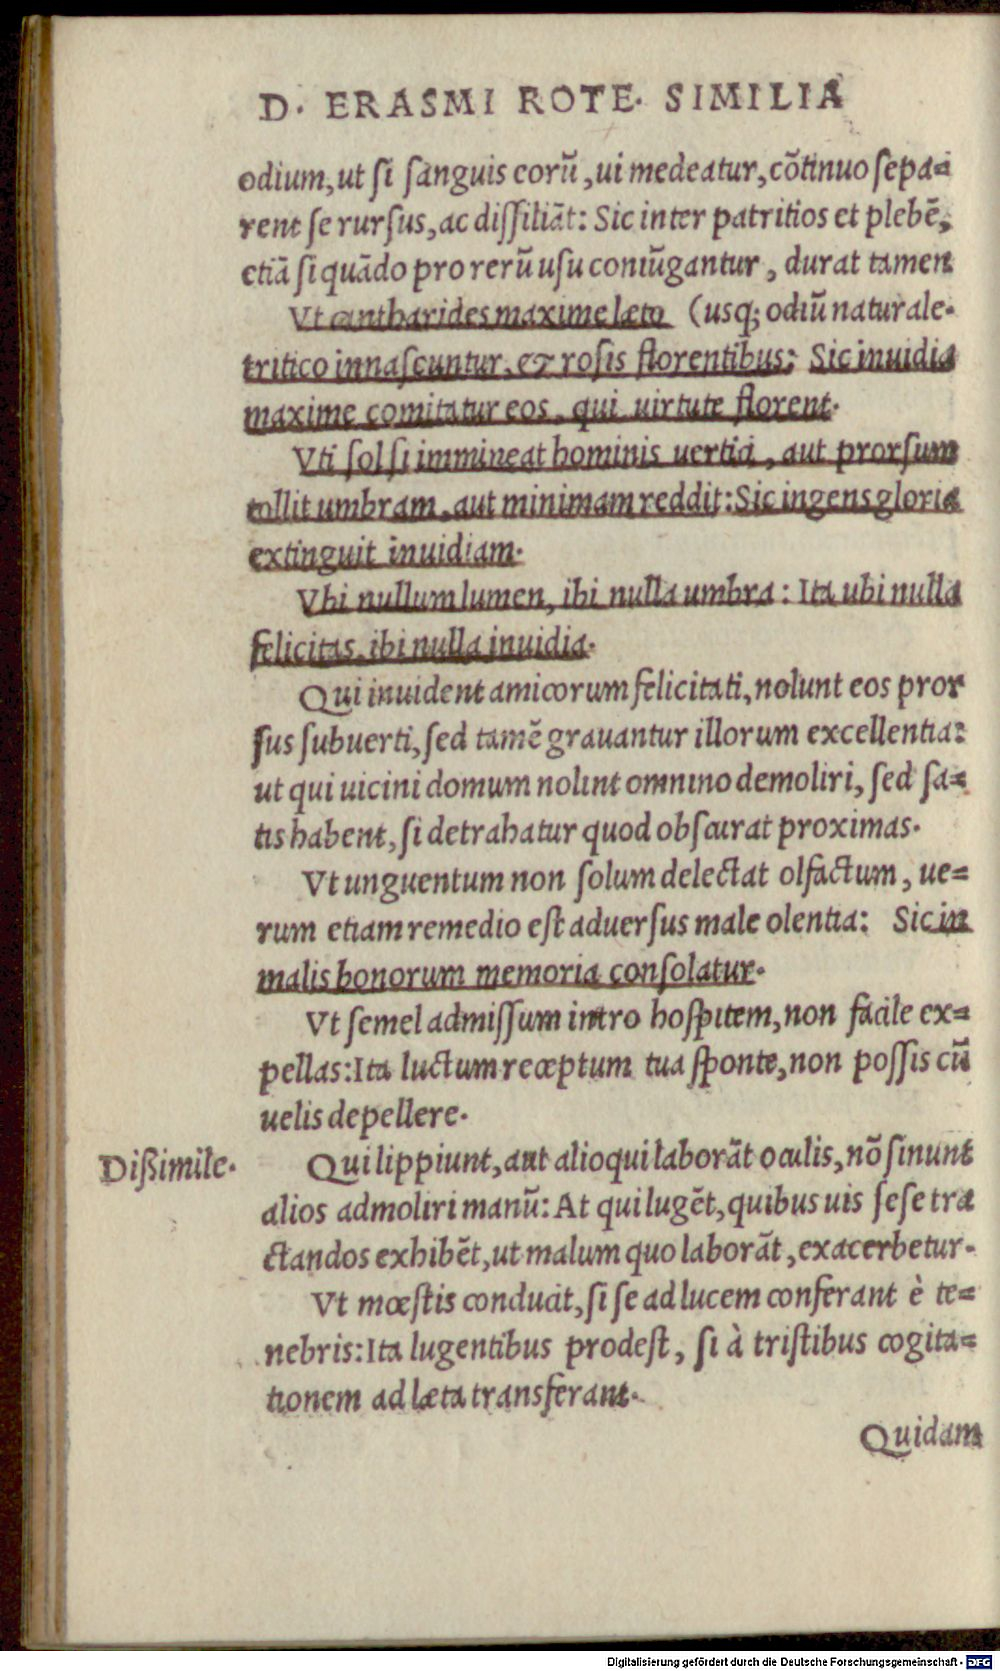 D. ERASMI ROTE. SIMILIA
odium, ut si sanguis eorũ, ui medeatur, cõtinuo sepa=
rent se rursus, ac dissiliãt: Sic inter patritios et plebẽ,
etiã si quãdo pro rerũ usu coniũgantur, durat tamen
Vt cantharides maxime læto (usq; odiũ naturale.
tritico innascuntur, & rosis florentibus: Sic inuidia
maxime comitatur eos, qui uirtute florent.
Vti sol si immineat hominis uertici, aut prorsum
tollit umbram, aut minimam reddit: Sic ingens gloria
extinguit inuidiam.
Vbi nullum lumen, ibi nulla umbra: Ita ubi nulla
felicitas, ibi nulla inuidia.
Qui inuident amicorum felicitati, nolunt eos pror
sus subuerti, sed tamẽ grauantur illorum excellentia:
ut qui uicini domum nolint omnino demoliri, sed sa=
tis habent, si detrahatur quod obscurat proximas.
Vt unguentum non solum delectat olfactum, ue=
rum etiam remedio est aduersus male olentia: Sic in
malis bonorum memoria consolatur.
Vt semel admissum intro hospitem, non facile ex=
pellas: Ita luctum receptum tua sponte, non possis cũ
uelis depellere.
Dißimile.
Qui lippiunt, aut alioqui laborãt oculis, nõ sinunt
alios admoliri manũ: At qui lugẽt, quibus uis sese tra
ctandos exhibẽt, ut malum quo laborãt, exacerbetur.
Vt mœstis conducit, si se ad lucem conferant è te=
nebris: Ita lugentibus prodest, si à tristibus cogita=
tionem ad læta transferant.
Quidam
Digitalisierung gefördert durch die Deutsche Forschungsgemeinschaft - DFG